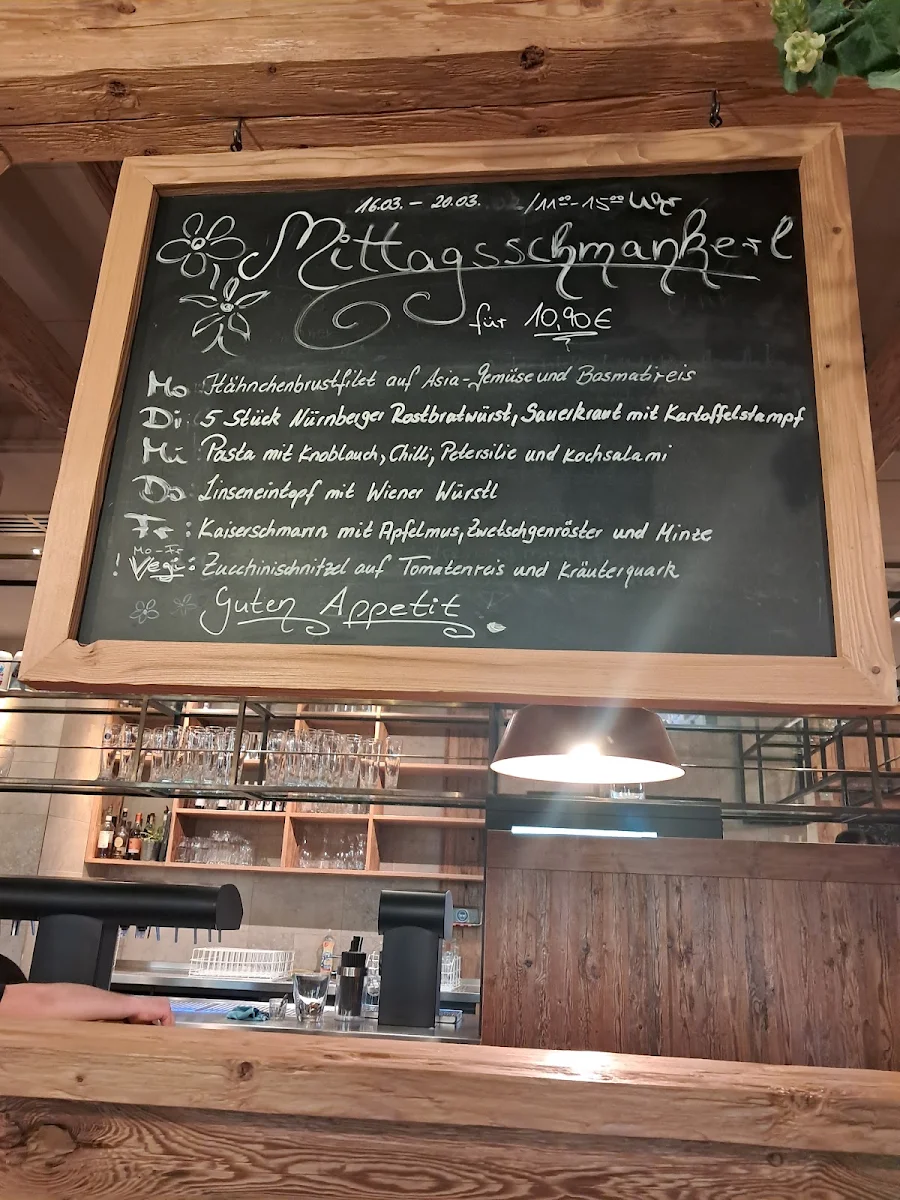 16.03. – 20.03. /11⁰⁰-15⁰⁰ Uhr
Mittagsschmankerl
für 10,90€
Mo: Hähnchenbrustfilet auf Asia-Gemüse und Basmatireis
Di: 5 Stück Nürnberger Rostbratwürst, Sauerkraut mit Kartoffelstampf
Mi: Pasta mit Knoblauch, Chilli, Petersilie und Kochsalami
Do: Linseneintopf mit Wiener Würstl
Fr: Kaiserschmarrn mit Apfelmus, Zwetschgenröster und Minze
Mo-Fr
! Vegi: Zucchinischnitzel auf Tomatenreis und Kräuterquark
Guten Appetit